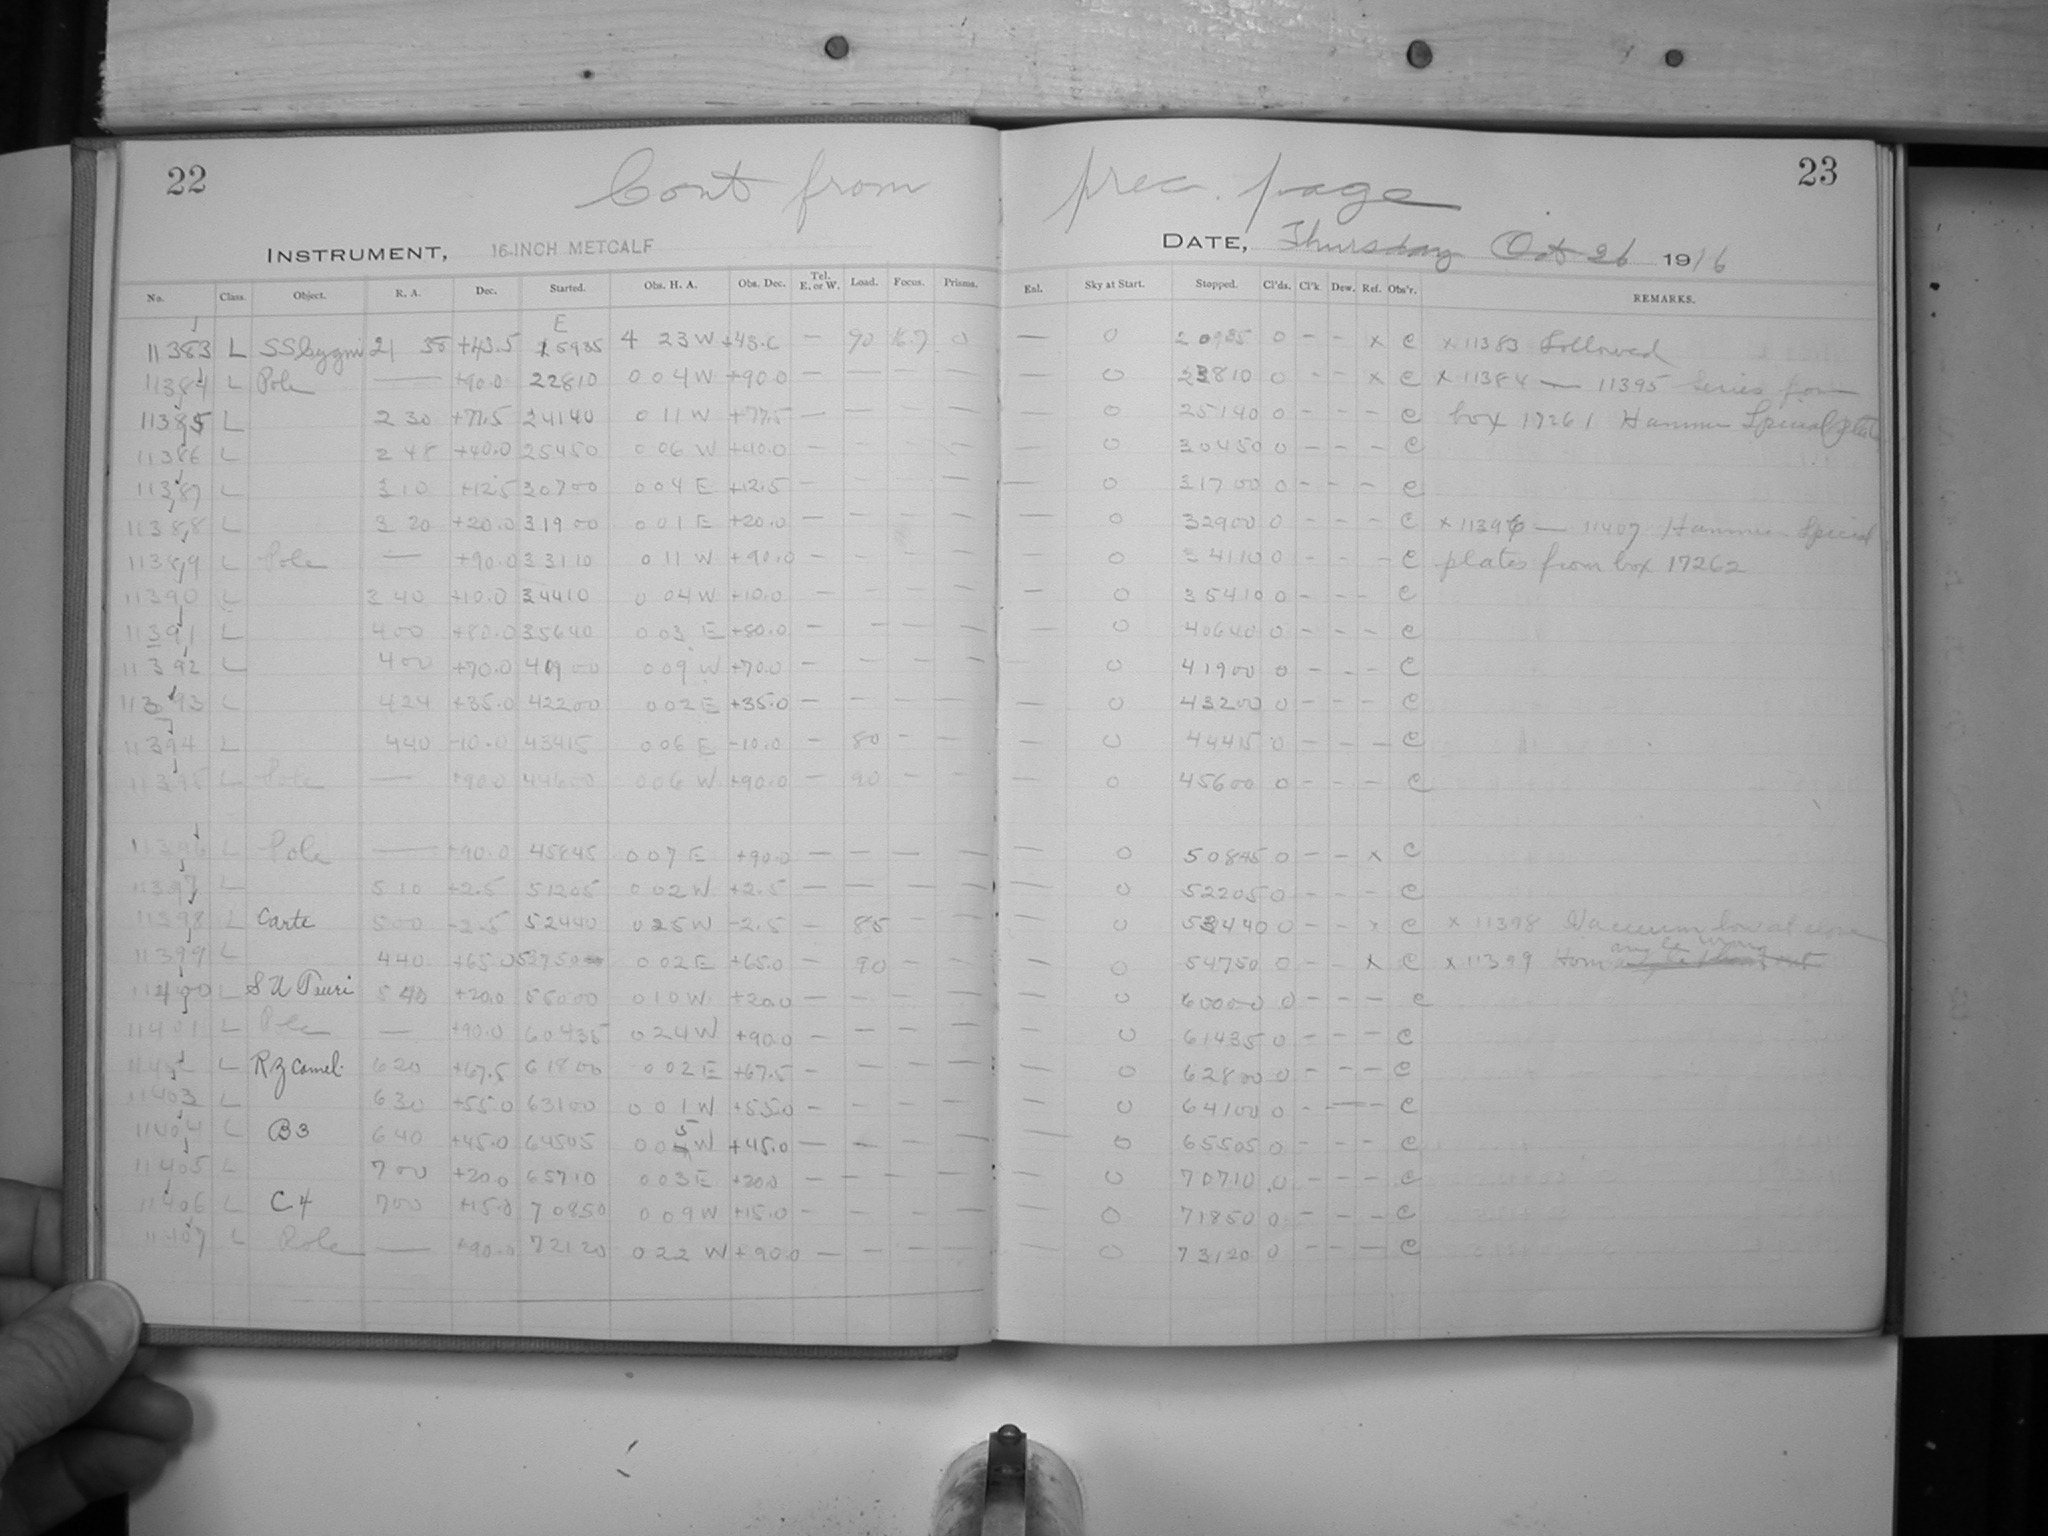 22
23
Cont from prec. page
INSTRUMENT, 16-INCH METCALF
DATE, Thursday Oct 26 1916
No. Class. Object. R. A. Dec. Started. Obs. H. A. Obs. Dec. Tel. E. or W. Load. Focus. Prisms. Enl. Sky at Start. Stopped. Cl'ds. Cl'k. Dew. Ref. Obs'r. REMARKS.
E
11383 L SS Cygni 21 38 +43.5 15935 4 23 W 90 16.7 0 — 0 20935 0 - - x C x 11383 Followed
11384 L Pole — +90.0 22810 0 04 W +90.0 — — — — — 0 23810 0 - - x C x 11384 — 11395 Series from
11385 L 2 30 +77.5 24140 0 11 W +77.5 — — — — — 0 25140 0 - - - C box 17261 Hammer Special plates
11386 L 2 48 +40.0 25450 0 06 W +40.0 — — — — — 0 30450 0 - - - C
11387 L 3 10 +12.5 30700 0 04 E +12.5 — — — — — 0 31700 0 - - - C
11388 L 3 20 +20.0 31900 0 01 E +20.0 — — — — — 0 32900 0 - - - C x 11396 — 11407 Hammer Special
11389 L Pole — +90.0 33110 0 11 W +90.0 — — — — — 0 34110 0 - - - C plates from box 17262
11390 L 3 40 +10.0 34410 0 04 W +10.0 — — — — — 0 35410 0 - - - C
11391 L 4 00 +80.0 35640 0 03 E +80.0 — — — — — 0 40640 0 - - - C
11392 L 4 00 +70.0 40900 0 09 W +70.0 — — — — — 0 41900 0 - - - C
11393 L 4 24 +35.0 42200 0 02 E +35.0 — — — — — 0 43200 0 - - - C
11394 L 4 40 -10.0 43415 0 06 E -10.0 — 80 — — — 0 44415 0 - - - C
11395 L Pole — +90.0 44600 0 06 W +90.0 — 90 — — — 0 45600 0 - - - C
11396 L Pole — +90.0 45845 0 07 E +90.0 — — — — — 0 50845 0 - - x C
11397 L 5 10 +2.5 51205 0 02 W +2.5 — — — — — 0 52205 0 - - - C
11398 L Carte 5 00 -2.5 52440 0 25 W -2.5 — 85 — — — 0 53440 0 - - x C x 11398 Vacuum low at close
11399 L 4 40 +65.0 53750 0 02 E +65.0 — 90 — — — 0 54750 0 - - x C x 11399 Hour angle wrong
11400 L SU Tauri 5 40 +20.0 55000 0 10 W +20.0 — — — — — 0 60000 0 - - - C
11401 L Pole — +90.0 60435 0 24 W +90.0 — — — — — 0 61435 0 - - - C
11402 L RZ Camel. 6 20 +67.5 61800 0 02 E +67.5 — — — — — 0 62800 0 - - - C
11403 L 6 30 +55.0 63100 0 01 W +55.0 — — — — — 0 64100 0 - - - C
11404 L B3 6 40 +45.0 64505 0 05 W +45.0 — — — — — 0 65505 0 - - - C
11405 L 7 00 +20.0 65710 0 03 E +20.0 — — — — — 0 70710 0 - - - C
11406 L C4 7 00 +15.0 70850 0 09 W +15.0 — — — — — 0 71850 0 - - - C
11407 L Pole — +90.0 72120 0 22 W +90.0 — — — — 0 73120 0 - - - C